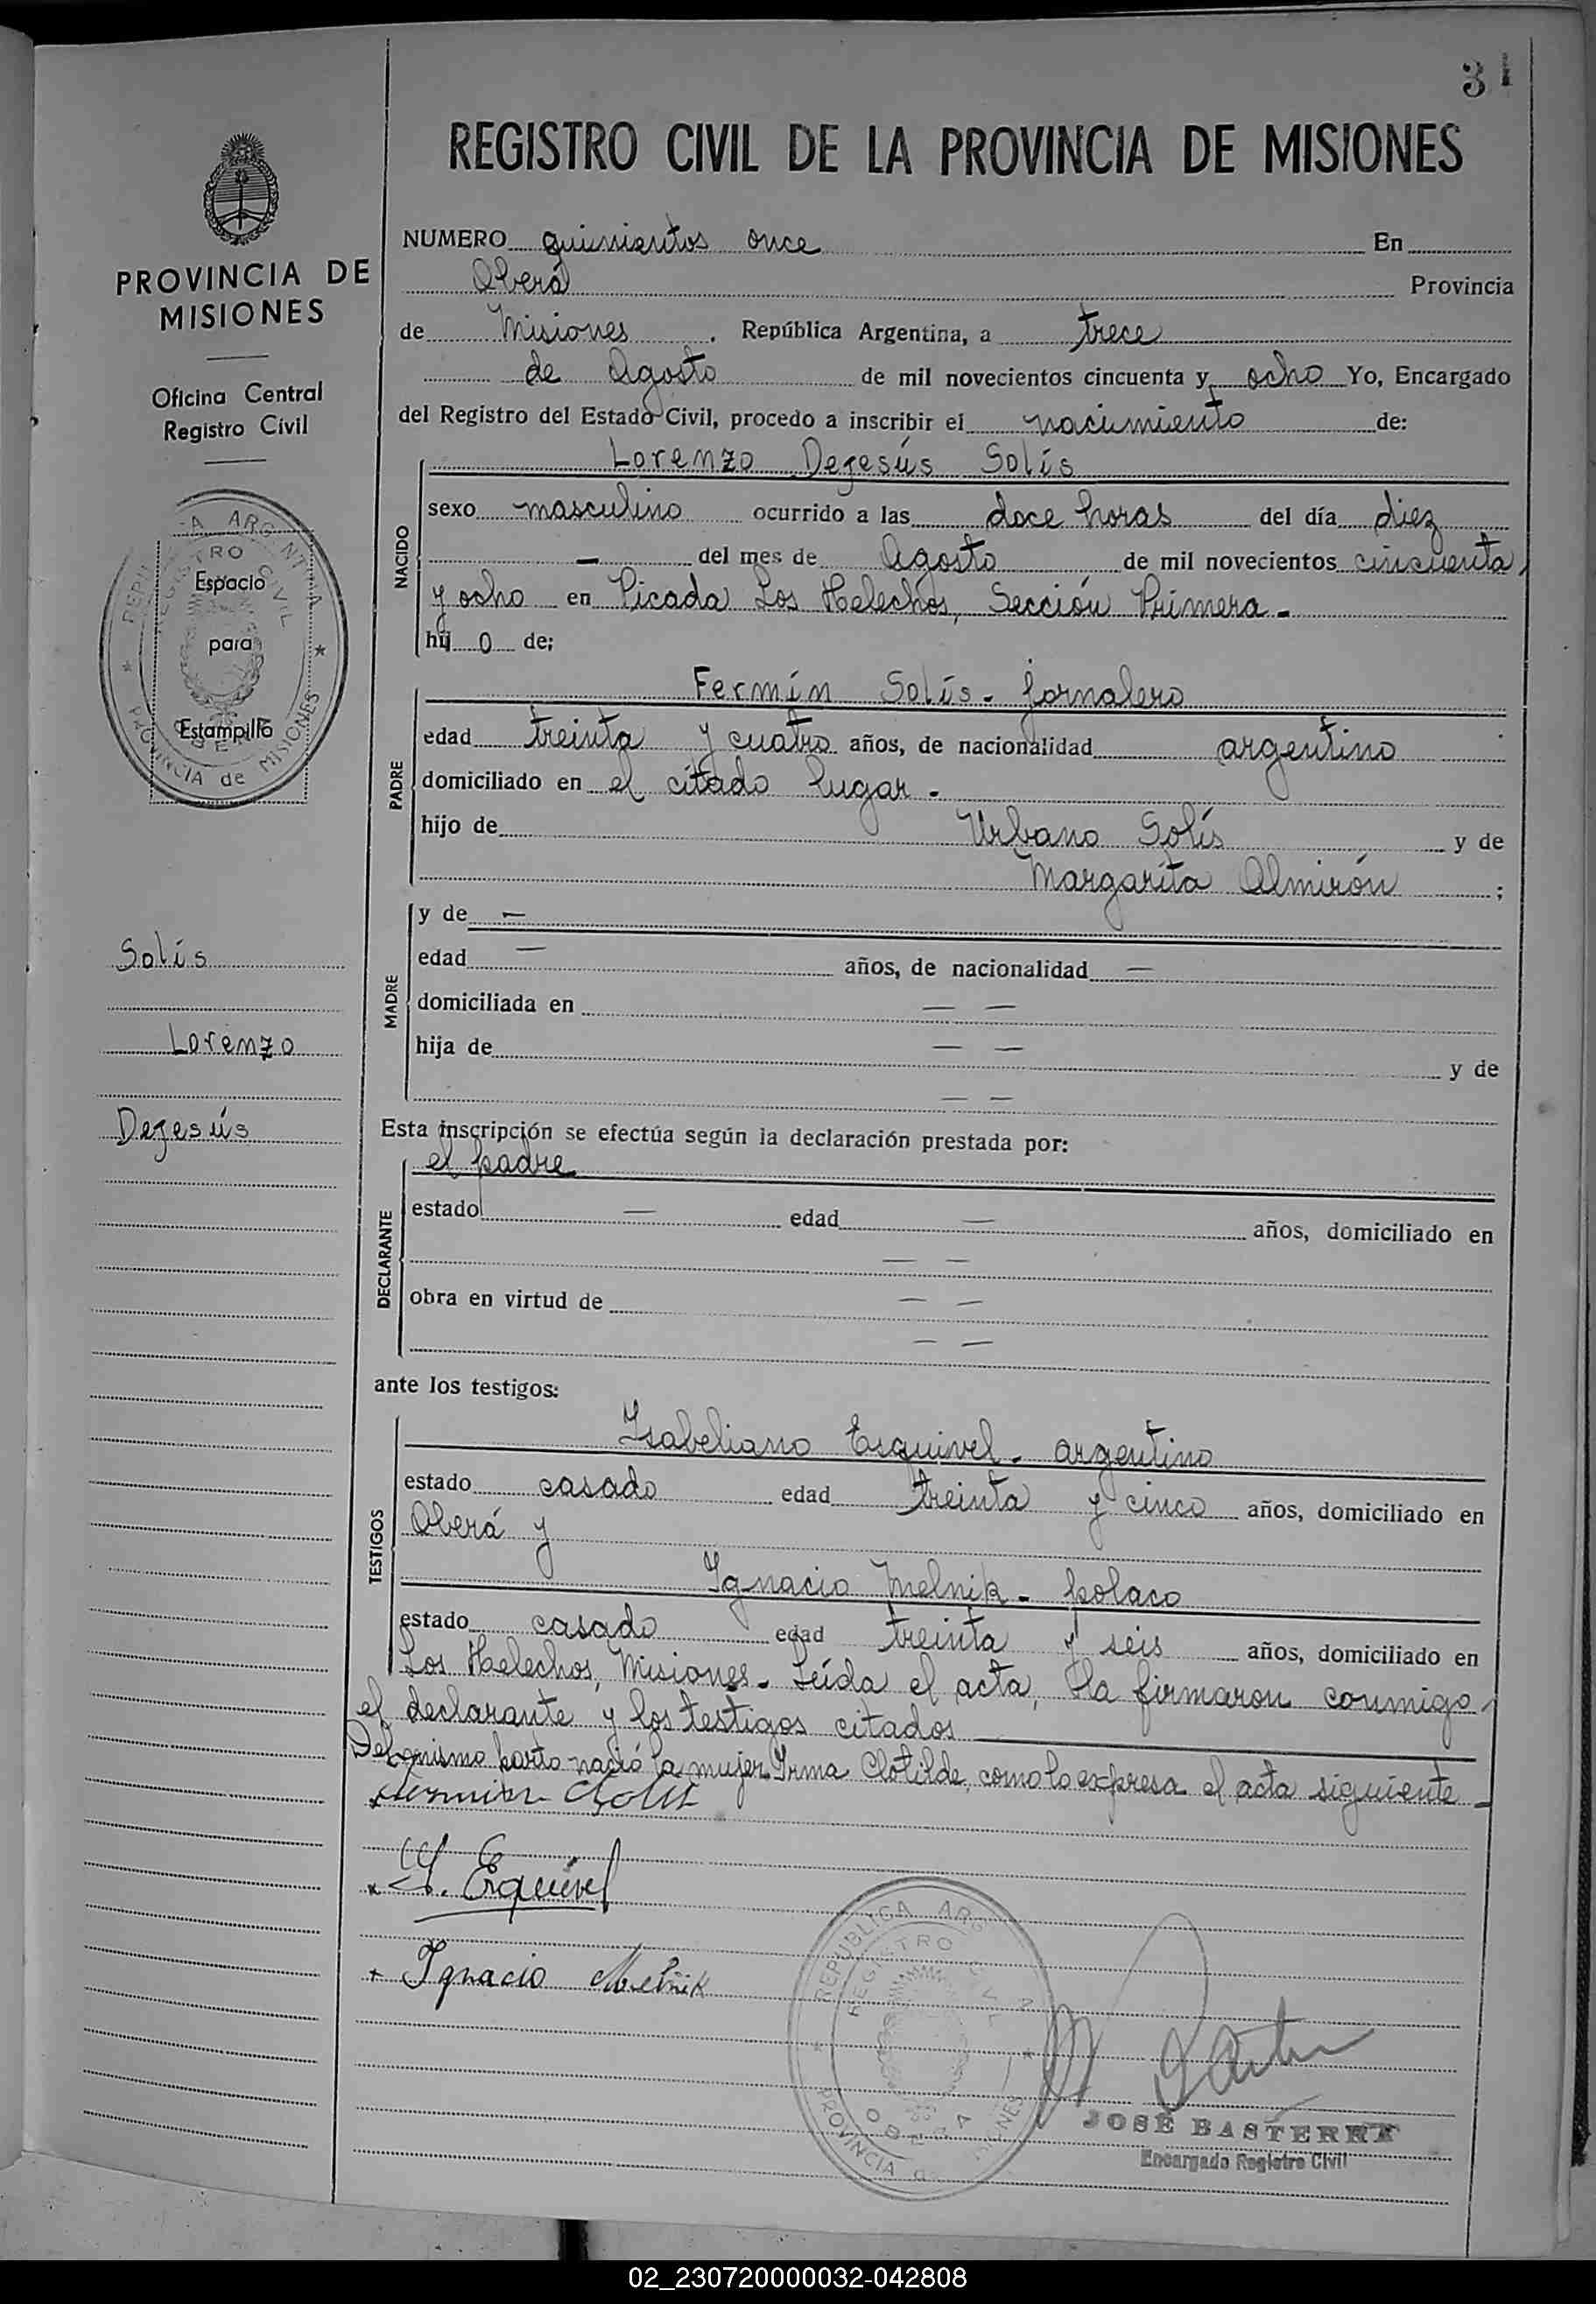 31
REGISTRO CIVIL DE LA PROVINCIA DE MISIONES
PROVINCIA DE
MISIONES
Oficina Central
Registro Civil
REPUBLICA ARGENTINA
REGISTRO CIVIL
Espacio
para
Estampilla
OBERA
PROVINCIA de MISIONES
Solís
Lorenzo
Dejesús
NUMERO quinientos once En
Oberá Provincia
de Misiones, República Argentina, a trece
de Agosto de mil novecientos cincuenta y ocho Yo, Encargado
del Registro del Estado Civil, procedo a inscribir el nacimiento de:
NACIDO
Lorenzo Dejesús Solís
sexo masculino ocurrido a las doce horas del día diez
— del mes de Agosto de mil novecientos cincuenta
y ocho en Picada Los Helechos, Sección Primera.-
hij o de;
PADRE
Fermín Solís - jornalero
edad treinta y cuatro años, de nacionalidad argentino
domiciliado en el citado lugar -
hijo de Urbano Solís y de
Margarita Almirón ;
MADRE
y de —
edad — años, de nacionalidad —
domiciliada en — —
hija de — — y de
— —
Esta inscripción se efectúa según la declaración prestada por:
DECLARANTE
el padre
estado — edad — años, domiciliado en
— —
obra en virtud de — —
— —
ante los testigos:
TESTIGOS
Isabeliano Esquivel - argentino
estado casado edad treinta y cinco años, domiciliado en
Oberá y
Ignacio Melnik - polaco
estado casado edad treinta y seis años, domiciliado en
Los Helechos, Misiones - Leída el acta, la firmaron conmigo,
el declarante y los testigos citados
Del mismo parto nació la mujer Irma Clotilde, como lo expresa el acta siguiente -
Fermin Solis
I. Esquivel
Ignacio Melnik
REPUBLICA ARGENTINA
REGISTRO CIVIL
OBERA
PROVINCIA de MISIONES
JOSÉ BASTERRA
Encargado Registro Civil
02_230720000032-042808